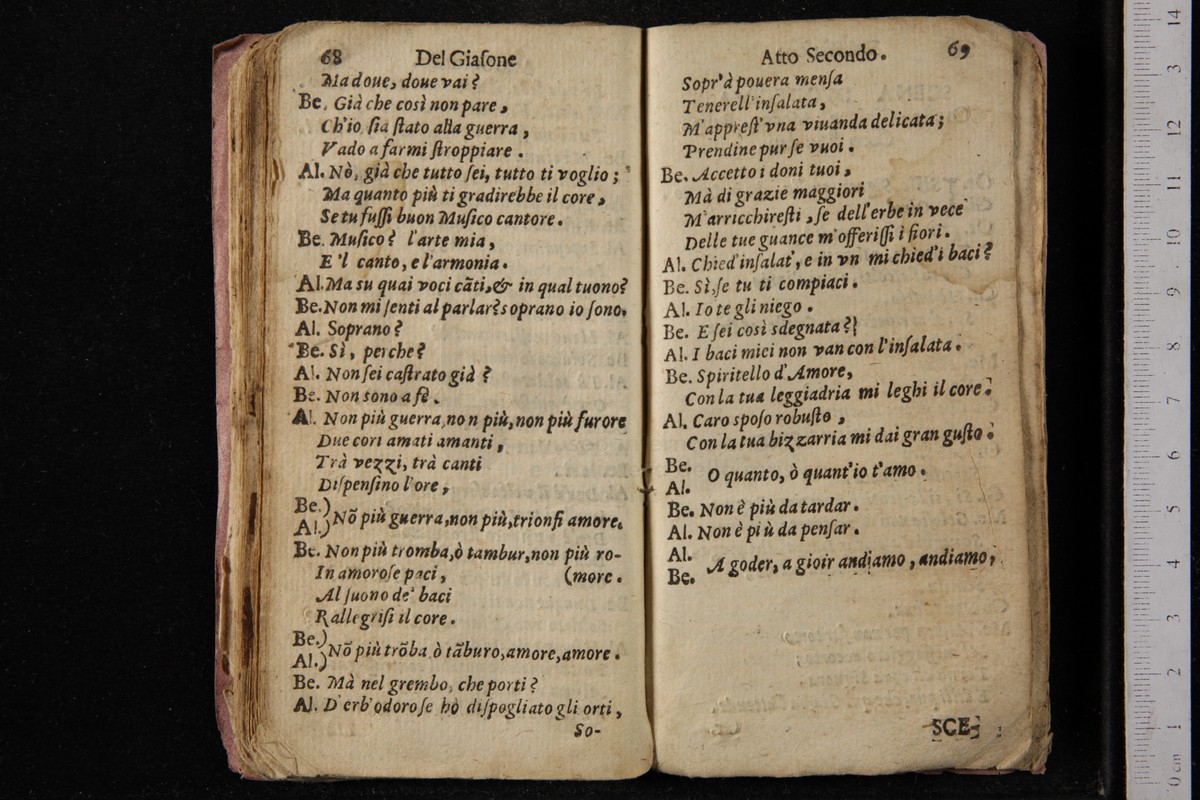 68 Del Giaſone
Ma doue, doue vai?
Be. Già che così non pare,
Ch'io ſia ſtato alla guerra,
Vado a farmi ſtroppiare.
Al. Nò, già che tutto ſei, tutto ti voglio;
Ma quanto più ti gradirebbe il core,
Se tu fuſſi buon Muſico cantore.
Be. Muſico? l'arte mia,
E 'l canto, e l'armonia.
Al. Ma su quai voci cāti, & in qual tuono?
Be. Non mi ſenti al parlar? soprano io ſono.
Al. Soprano?
Be. Sì, perche?
Al. Non ſei caſtrato già?
Be. Non sono a fè.
Al. Non più guerra, non più, non più furore
Due cori amati amanti,
Trà vezzi, trà canti
Diſpenſino l'ore,
Be.)
Al.) Nō più guerra, non più, trionfi amore.
Be. Non più tromba, ò tambur, non più ro-
In amoroſe paci, (more.
Al ſuono de' baci
Rallegriſi il core.
Be.)
Al.) Nō più trōba ò tāburo, amore, amore.
Be. Mà nel grembo, che porti?
Al. D'erb'odoroſe hò diſpogliato gli orti,
So-
Atto Secondo. 69
Sopr'à pouera menſa
Tenerell'inſalata,
M'appreſt'vna viuanda delicata;
Prendine pur ſe vuoi.
Be. Accetto i doni tuoi,
Mà di grazie maggiori
M'arricchireſti, ſe dell'erbe in vece
Delle tue guance m'offeriſſi i fiori.
Al. Chied'inſalat', e in vn mi chied'i baci?
Be. Sì, ſe tu ti compiaci.
Al. Io te gli niego.
Be. E ſei così sdegnata?
Al. I baci miei non van con l'inſalata.
Be. Spiritello d'Amore,
Con la tua leggiadria mi leghi il core.
Al. Caro spoſo robuſto,
Con la tua bizzarria mi dai gran guſto.
Be.
Al. O quanto, ò quant'io t'amo.
Be. Non è più da tardar.
Al. Non è più da penſar.
Al.
Be. A goder, a gioir andiamo, andiamo,
SCE-
14
13
12
11
10
9
8
7
6
5
4
3
2
1
0 cm